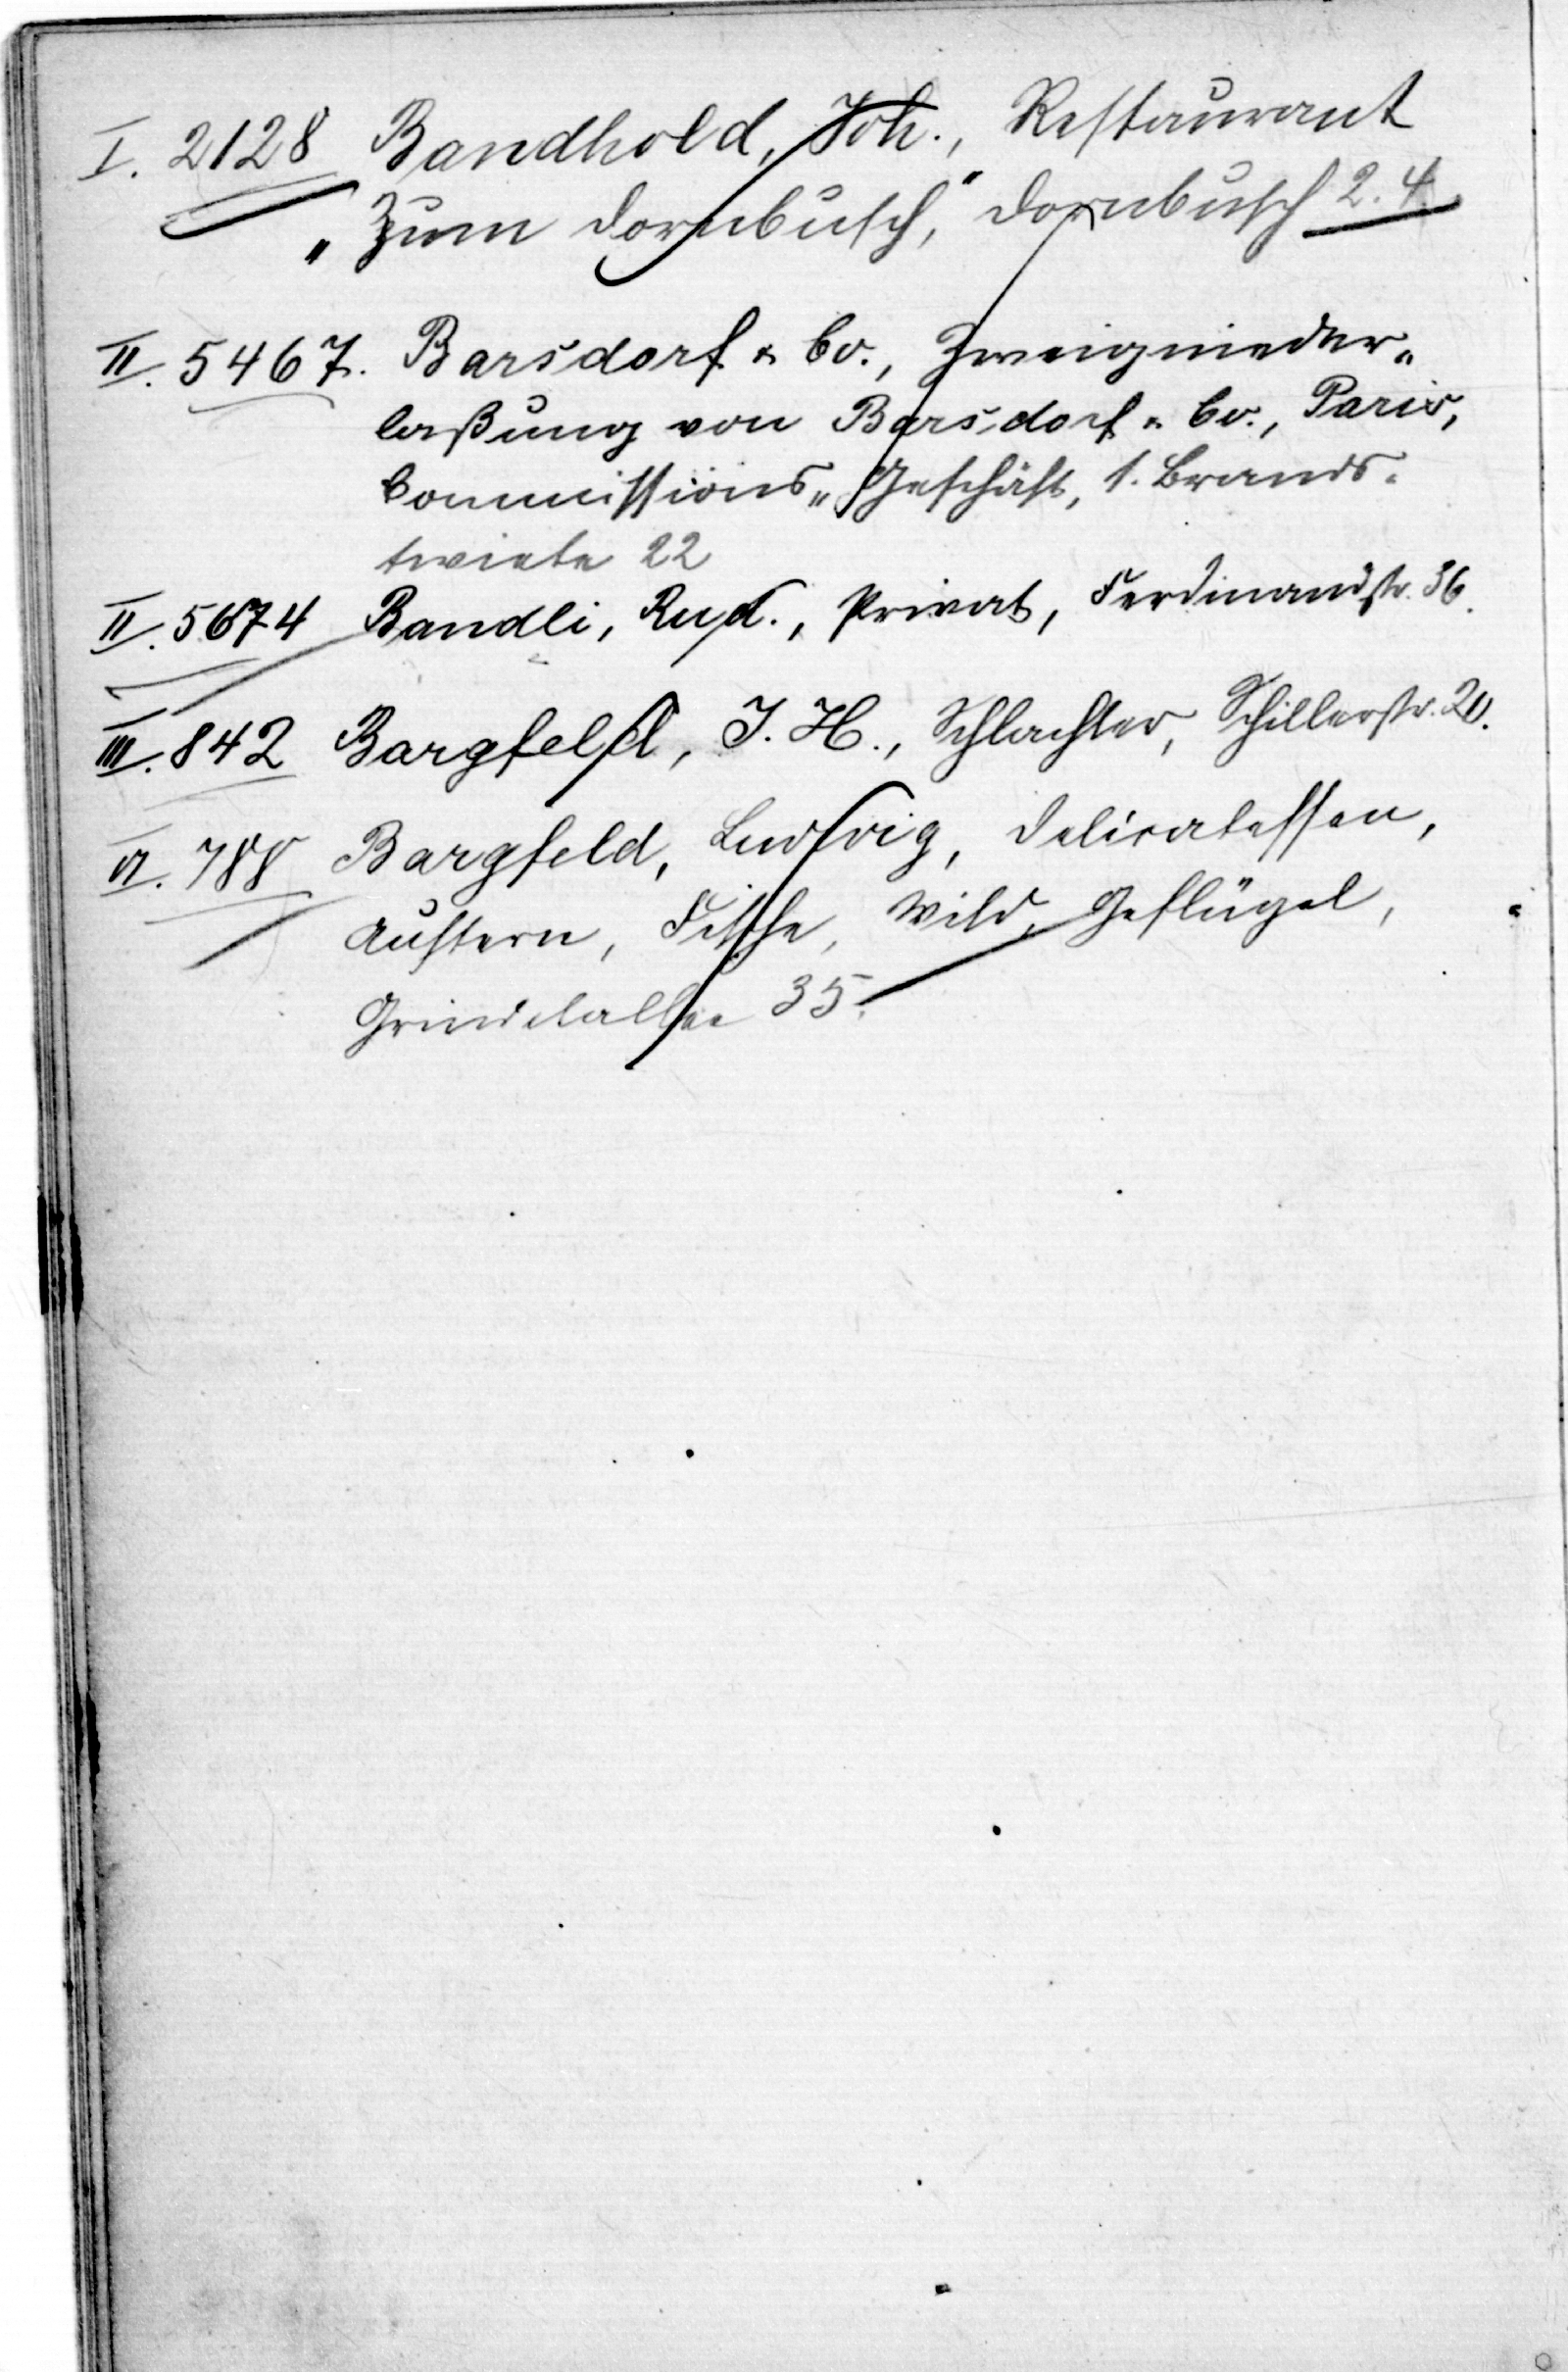 I. 2128 Bandhold, Joh., Restaurant
„Zum Dornbusch," Dornbusch 2.4
II. 5467. Barsdorf & Co., Zweignieder„
laßung von Barsdorf & Co., Paris,
Commissions„Geschäft, 1. Brands„
twiete 22
II. 5674 Bandli, Rud., Privat, Ferdinandstr. 36.
III. 842 Bargfeld, J. H., Schlachter, Schillerstr. 20.
VI. 788 Bargfeld, Ludwig, Delicatessen,
Austern, Fische, Wild, Geflügel,
Grindelallee 35.